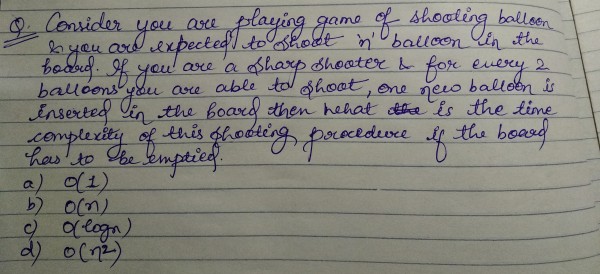 Q. Consider you are playing game of shooting balloon
& you are expected to shoot 'n' balloon in the
board. If you are a sharp shooter & for every 2
balloons you are able to shoot, one new balloon is
inserted in the board then what is the time
complexity of this shooting procedure if the board
has to be emptied.
a) O(1)
b) O(n)
c) O(logn)
d) O(n²)